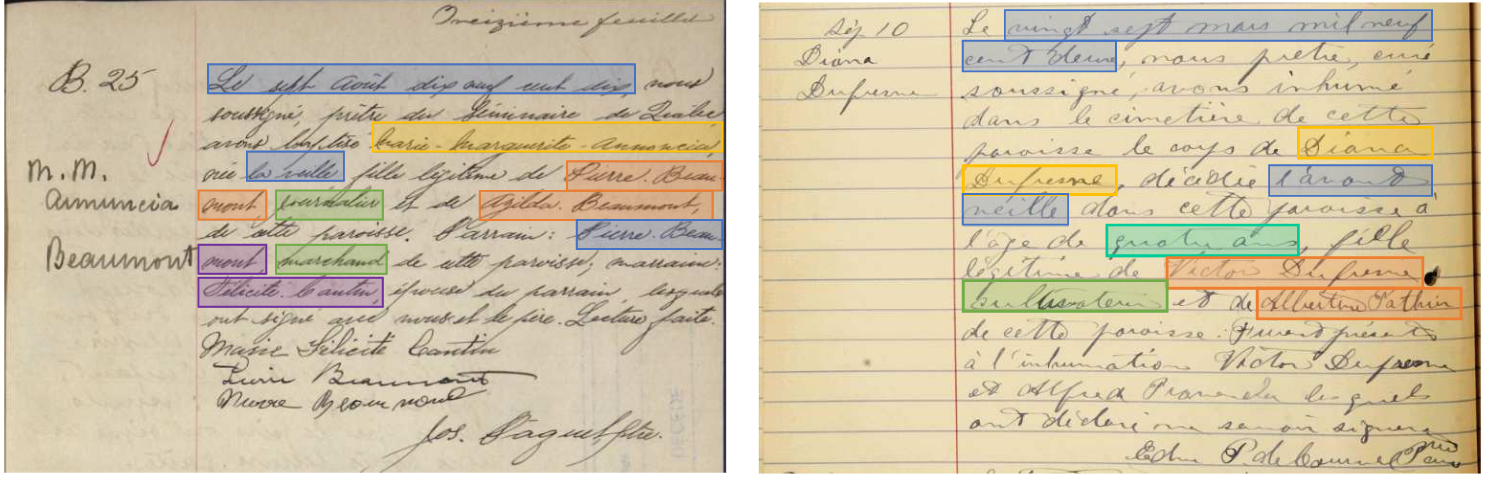 Treizième feuillet
B. 25
M. M.
Annuncia
Beaumont
Le sept Août dix neuf cent dix, nous
soussigné, prêtre du Séminaire de Québec
avons baptisé Marie-Marguerite-Annoncia
née la veille fille légitime de Pierre Beau-
mont, journalier et de Azilda Beaumont,
de cette paroisse. Parrain: Pierre Beau-
mont, marchand de cette paroisse; marraine:
Félicité Cantin, épouse du parrain, lesquels
ont signé avec nous et le père. Lecture faite.
Marie Félicité Cantin
Pierre Beaumont
Pierre Beaumont
Jos. Paquet Ptre.
Sép 10
Diana
Dufresne
Le vingt sept mars mil neuf
cent deux, nous prêtre, curé
soussigné, avons inhumé
dans le cimetière de cette
paroisse le corps de Diana
Dufresne, décédée l'avant
veille dans cette paroisse à
l'âge de quatre ans, fille
légitime de Victor Dufresne
cultivateur et de Albertine
de cette paroisse. Furent présents
à l'inhumation Victor Dufresne
et Alfred lesquels
ont déclaré ne savoir signer.